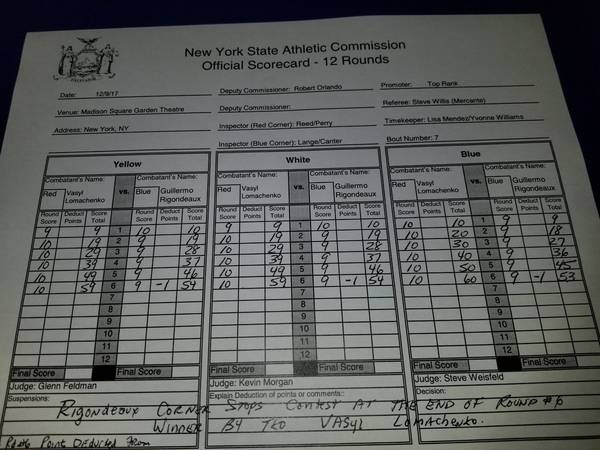 New York State Athletic Commission
Official Scorecard - 12 Rounds
Date: 12/9/17
Deputy Commissioner: Robert Orlando
Promoter: Top Rank
Venue: Madison Square Garden Theatre
Deputy Commissioner:
Referee: Steve Willis (Mercante)
Address: New York, NY
Inspector (Red Corner): Reed/Perry
Timekeeper: Lisa Mendez/Yvonne Williams
Inspector (Blue Corner): Lange/Canter
Bout Number: 7
Yellow White Blue
Combatant's Name: Combatant's Name: Combatant's Name: Combatant's Name: Combatant's Name: Combatant's Name:
Red Vasyl Lomachenko vs. Blue Guillermo Rigondeaux Red Vasyl Lomachenko vs. Blue Guillermo Rigondeaux Red Vasyl Lomachenko vs. Blue Guillermo Rigondeaux
Round Score Deduct Points Score Total Round Score Deduct Points Score Total Round Score Deduct Points Score Total Round Score Deduct Points Score Total Round Score Deduct Points Score Total Round Score Deduct Points Score Total
9 9 1 10 10 9 9 1 10 10 10 10 1 9 9
10 19 2 9 19 10 19 2 9 19 10 20 2 9 18
10 29 3 9 28 10 29 3 9 28 10 30 3 9 27
10 39 4 9 37 10 39 4 9 37 10 40 4 9 36
10 49 5 9 46 10 49 5 9 46 10 50 5 9 45
10 59 6 9 -1 54 10 59 6 9 -1 54 10 60 6 9 -1 53
7 7 7
8 8 8
9 9 9
10 10 10
11 11 11
12 12 12
Final Score Final Score Final Score Final Score Final Score Final Score
Judge: Glenn Feldman Judge: Kevin Morgan Judge: Steve Weisfeld
Suspensions: Explain Deduction of points or comments:: Decision:
Rigondeaux Corner Stops Contest At The End of Round #6
Winner By TKO Vasyl Lomachenko.
Point Deducted From